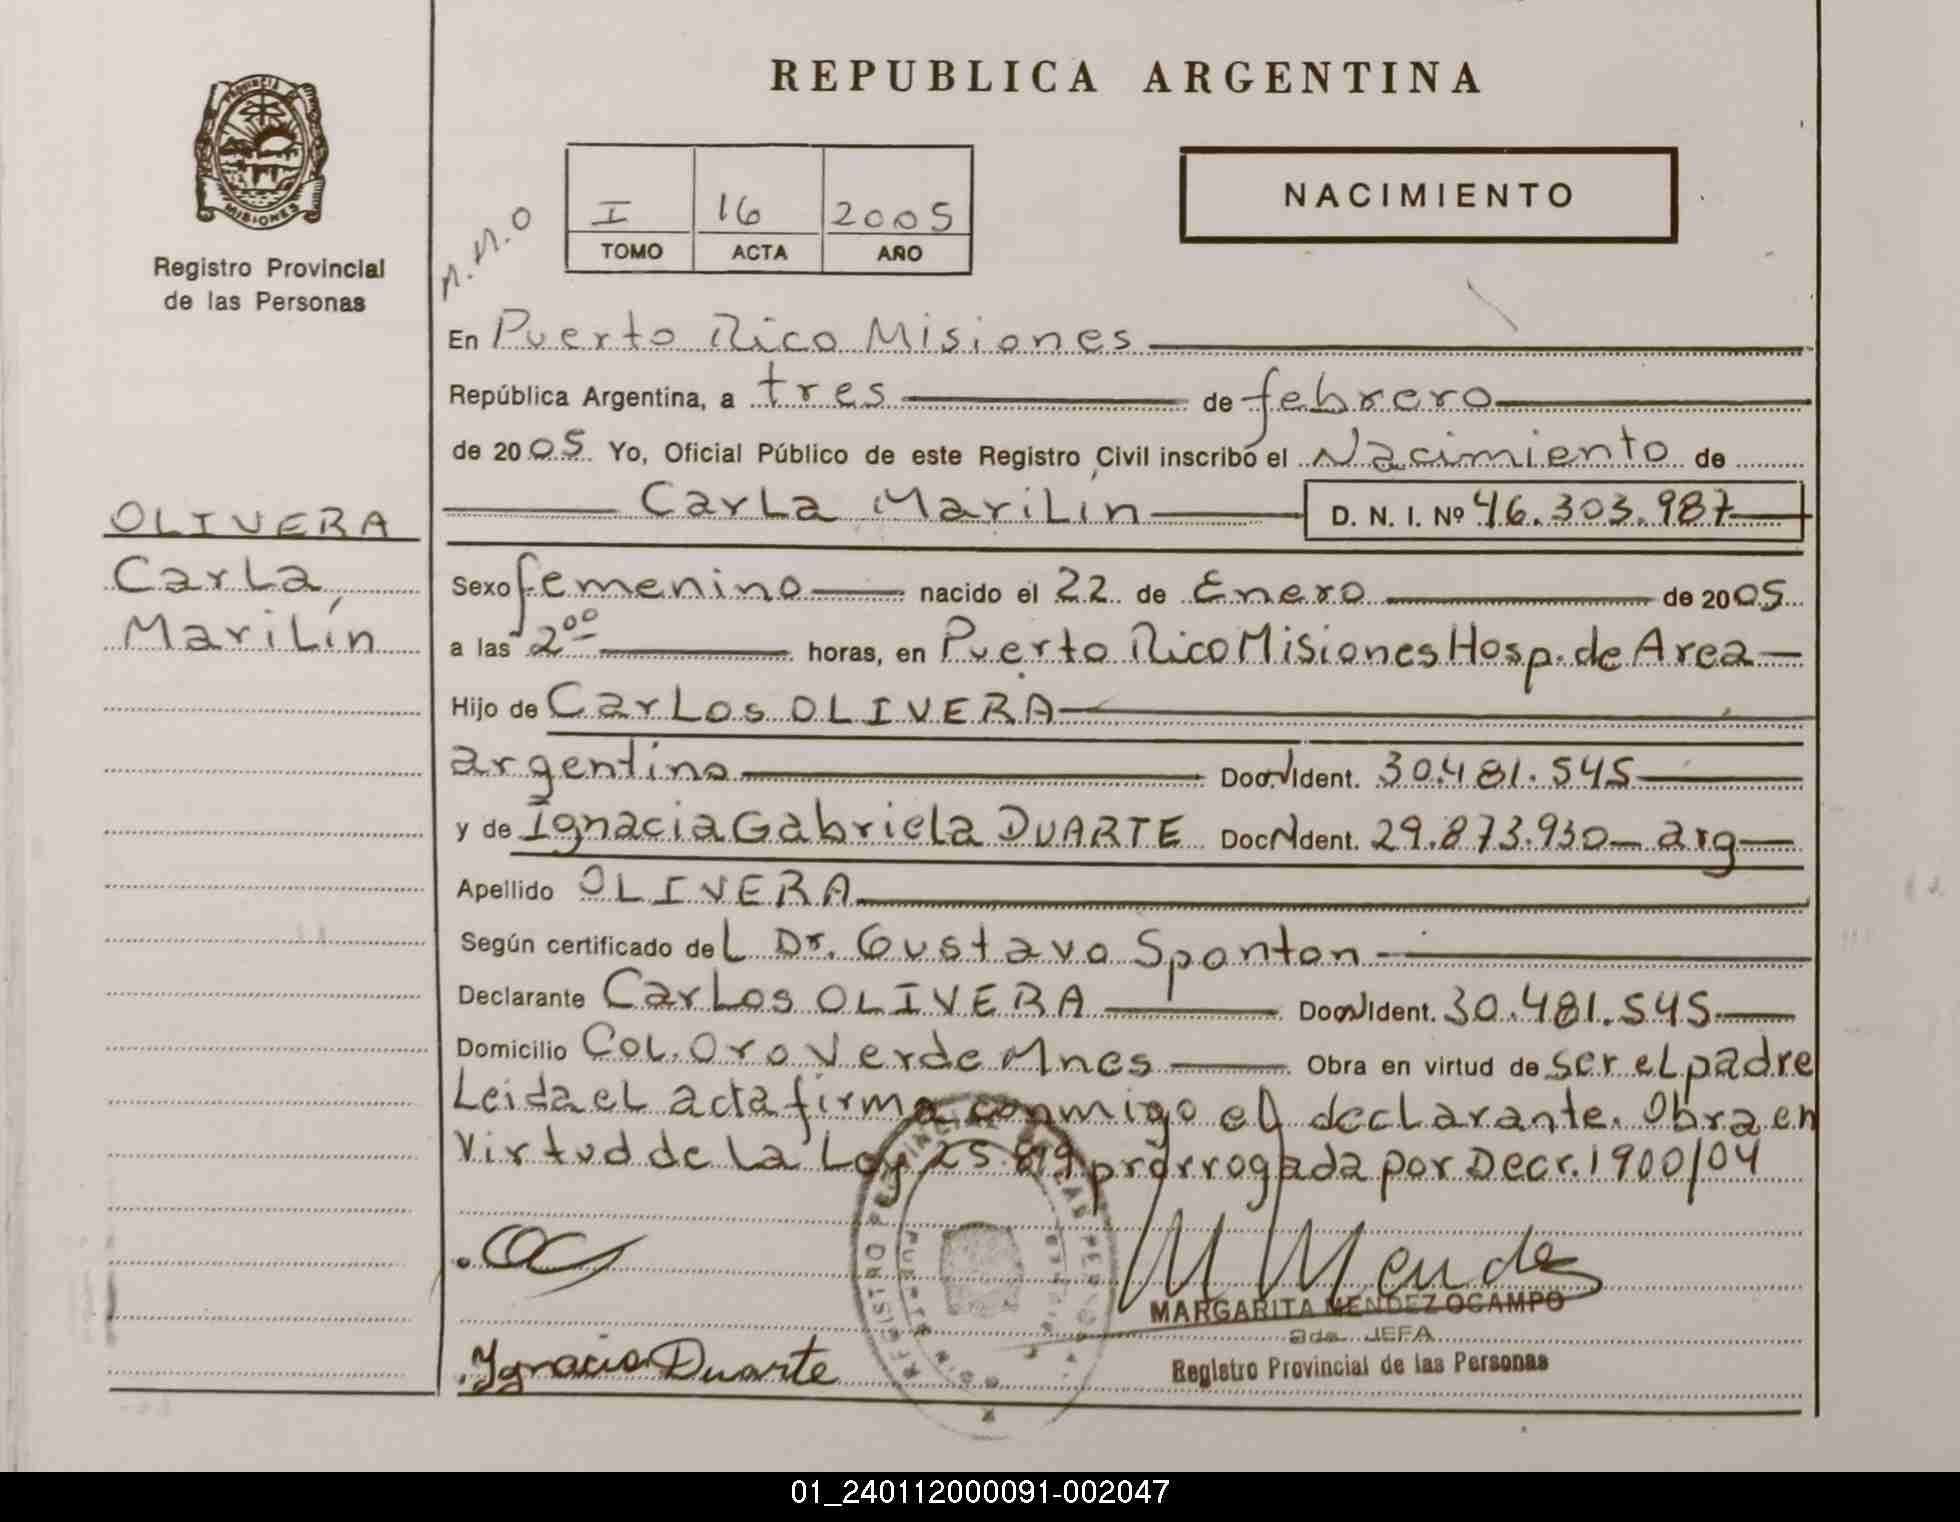 REPUBLICA ARGENTINA
PROVINCIA DE
MISIONES
Registro Provincial
de las Personas
I 16 2005
TOMO ACTA AÑO
NACIMIENTO
En Puerto Rico Misiones
República Argentina, a tres de febrero
de 2005 Yo, Oficial Público de este Registro Civil inscribo el Nacimiento de
Carla Marilín D. N. I. Nº 46.303.987
OLIVERA
Carla
Marilín
Sexo femenino nacido el 22 de Enero de 2005
a las 2 00 horas, en Puerto Rico Misiones Hosp. de Area
Hijo de Carlos OLIVERA
argentino Doc. Ident. 30.481.545
y de Ignacia Gabriela DUARTE Doc. Ident. 29.873.930 arg
Apellido OLIVERA
Según certificado del Dr. Gustavo Sponton
Declarante Carlos OLIVERA Doc. Ident. 30.481.545
Domicilio Col. Oro Verde Mnes Obra en virtud de ser el padre
Leida el acta firma conmigo el declarante. Obra en
Virtud de la Ley 25.819 prorrogada por Decr. 1900/04
M Mendez
MARGARITA MENDEZ OCAMPO
2da. JEFA
Registro Provincial de las Personas
Ignacia Duarte
01_240112000091-002047